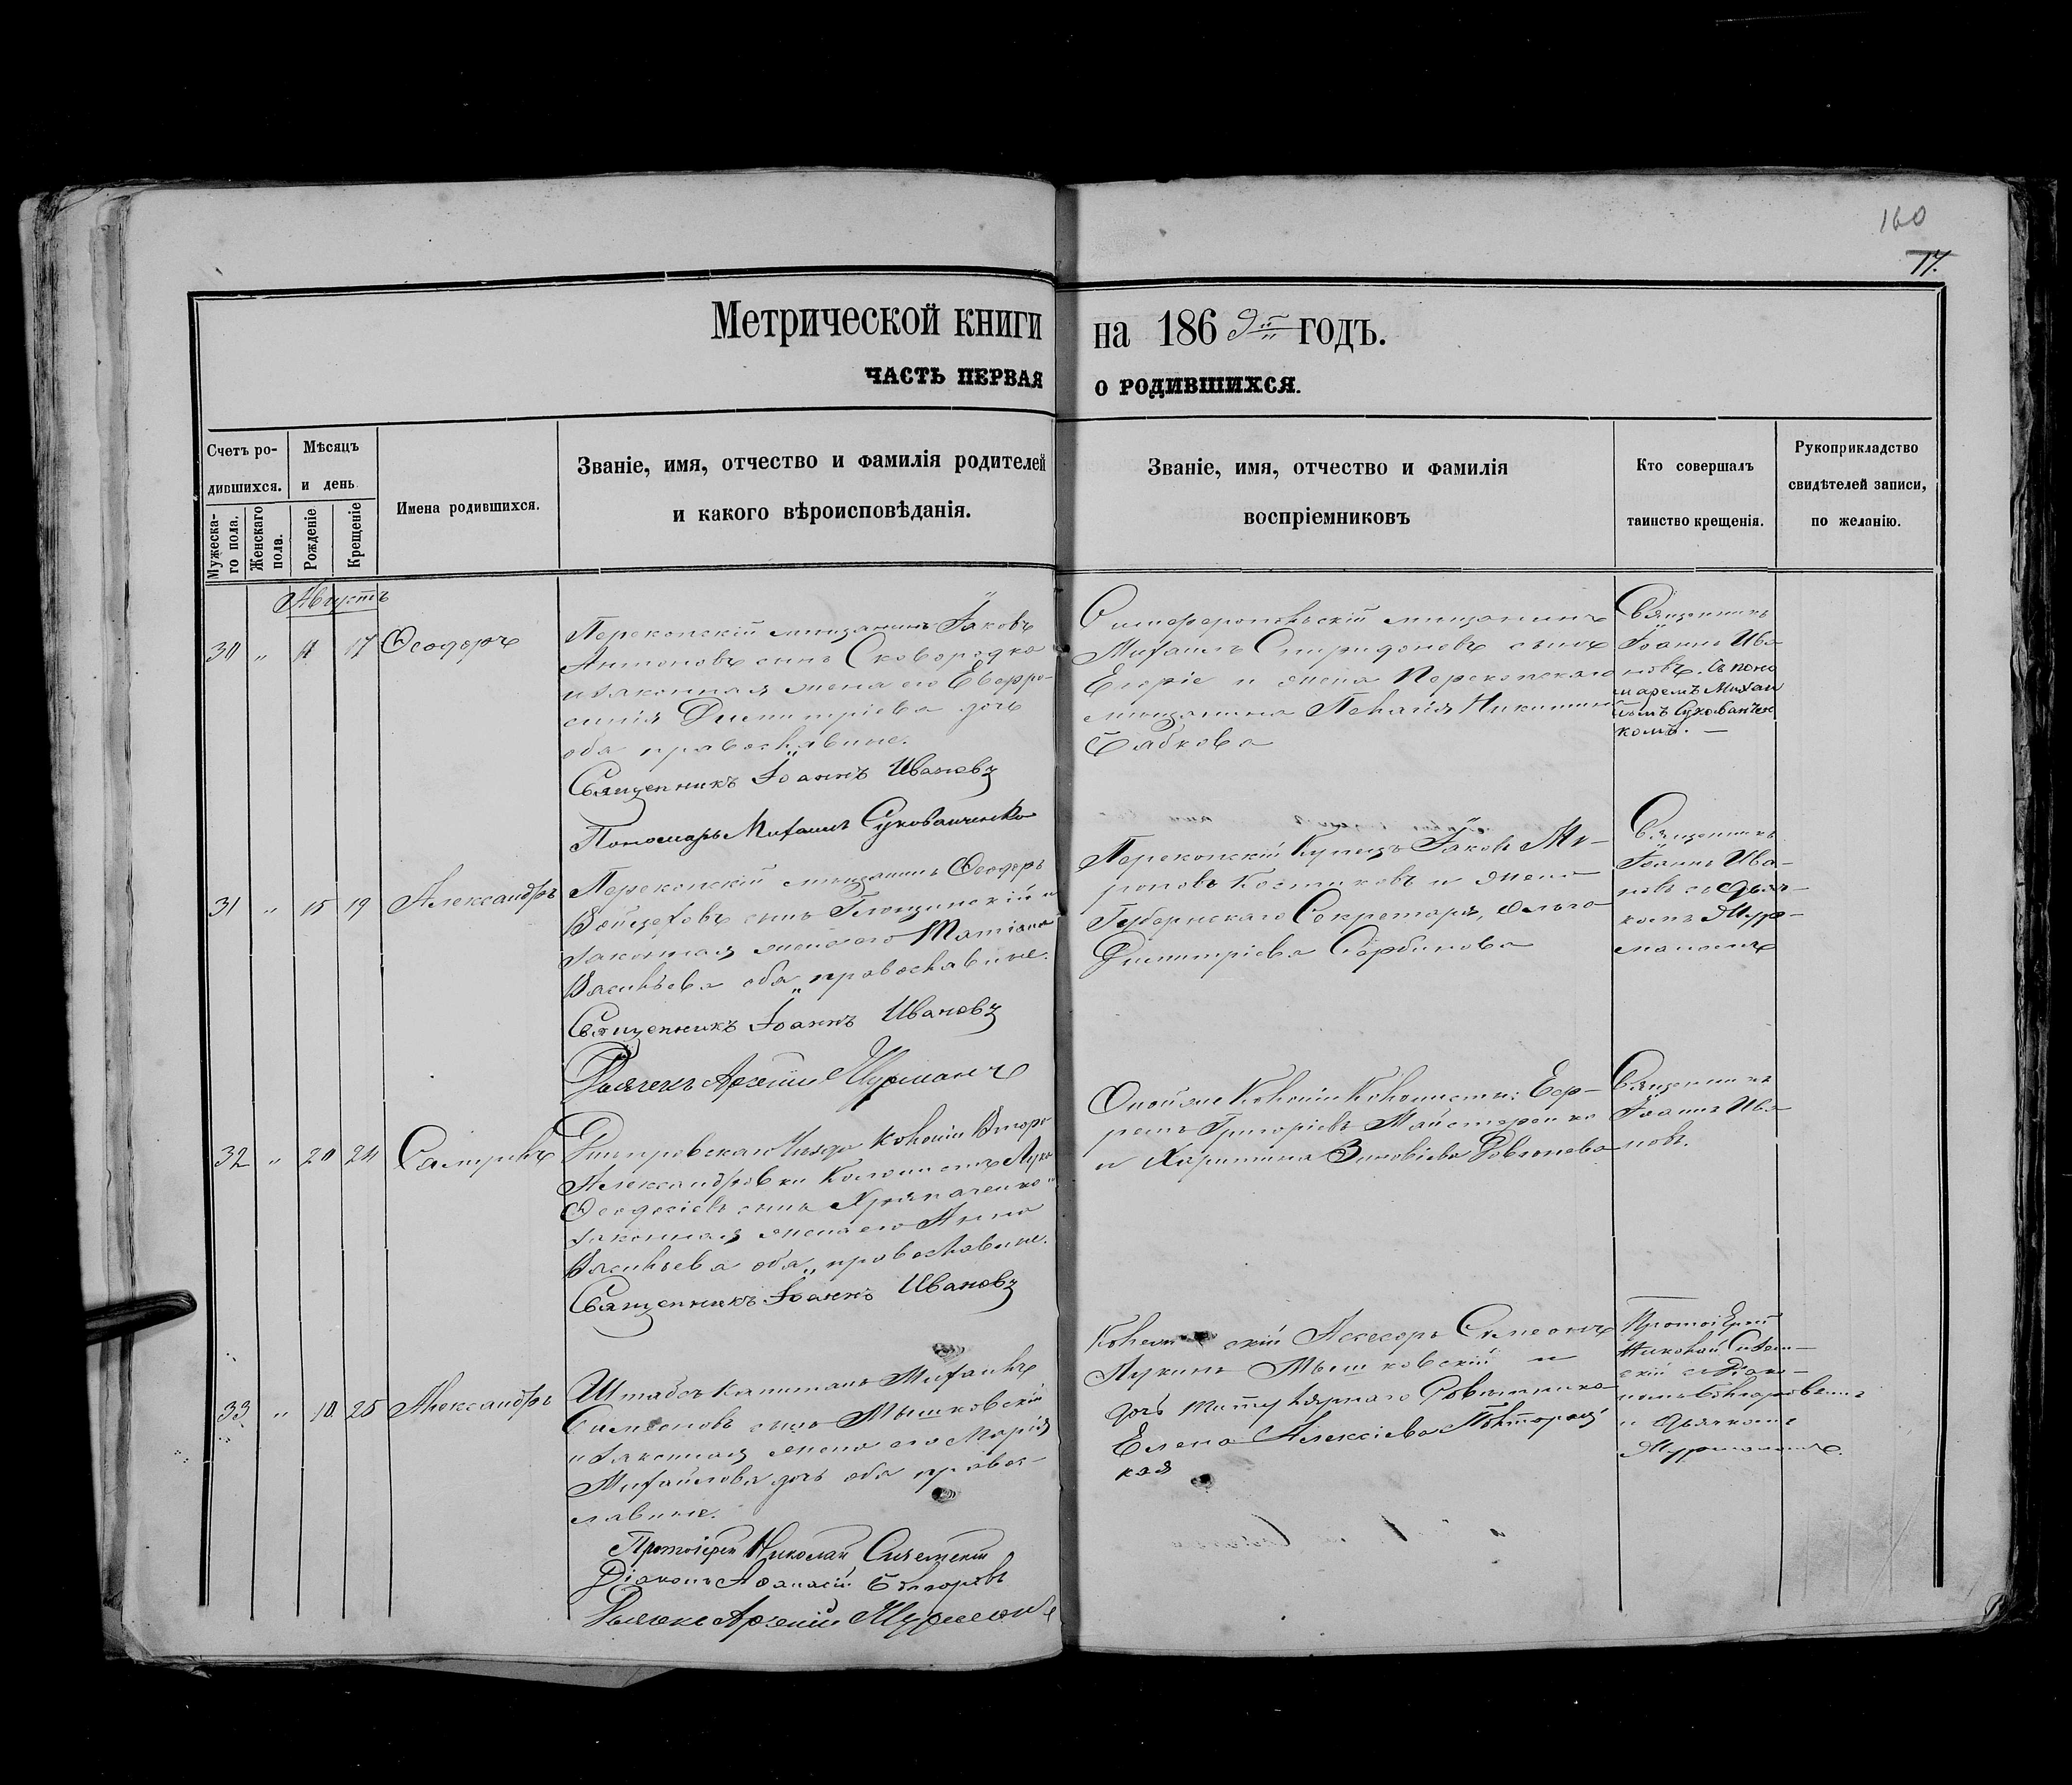 160
17.
Метрической книги на 1869й годъ.
ЧАСТЬ ПЕРВАЯ О РОДИВШИХСЯ.
Счетъ ро-
дившихся.
Мужеска-
го пола.
Женскаго
пола.
Мѣсяцъ
и день
Рожденіе
Крещеніе
Имена родившихся.
Званіе, имя, отчество и фамилія родителей
и какого вѣроисповѣданія.
Званіе, имя, отчество и фамилія
воспріемниковъ
Кто совершалъ
таинство крещенія.
Рукоприкладство
свидѣтелей записи,
по желанію.
Августъ
30 " 11 17 Ѳеодоръ
Перекопскій мѣщанинъ Іаковъ
Антоновъ сынъ Сковородка
и законная жена его Евфро-
синія Димитріева дочь
оба православные.
Священникъ Іоаннъ Ивановъ
Пономарь Михаилъ Сукованченко
Симферопольскій мѣщанинъ
Михаилъ Спиридоновъ сынъ
и жена Перекопскаго
мѣщанина Пелагія Никитина
Священникъ
Іоаннъ Ива-
новъ. съ поно
маремъ Михаи
ломъ Сукованчен
комъ. —
31 " 15 19 Александръ
Перекопскій мѣщанинъ Ѳеодоръ
сынъ и
законная жена его Татіана
Васильева оба православные.
Священникъ Іоаннъ Ивановъ
Дьячекъ Арсеній Мурманъ
Перекопскій Купецъ Іаковъ Ми-
роновъ Костиковъ и жена
Губернскаго Секретаря, Ольга
Димитріева Сербинова
Священникъ
Іоаннъ Ива-
новъ съ дьяч-
комъ Мур-
маномъ
32 " 20 24 Гавріилъ
Днѣпровскаго Уѣзда колоніи Второ
Александровки колонистъ Лука
Ѳеодосіевъ сынъ и
законная жена его Анна
Васильева оба православные.
Священникъ Іоаннъ Ивановъ
Оной же Колоніи Колонисты: Еф-
ремъ Григоріевъ Майстеренко
и Харитина Зиновіева
Священникъ
Іоаннъ Ива-
новъ.
33 " 10 25 Александръ
Штабсъ Капитанъ Михаилъ
Симеоновъ сынъ Мышковскій
и законная жена его Марія
Михайлова дочь оба право-
славные.
Протоіерей Николай
Діаконъ Аѳанасій Болгаровъ
Дьячекъ Арсеній Мурманъ
скій Асессоръ Симеонъ
Лукинъ Мышковскій и
дочь Титулярнаго Совѣтника
Елена Алексіева Полторац-
кая
Протоіерей
Николай
скій съ Діако-
номъ Болгаровымъ
и дьячкомъ
Мурманомъ.